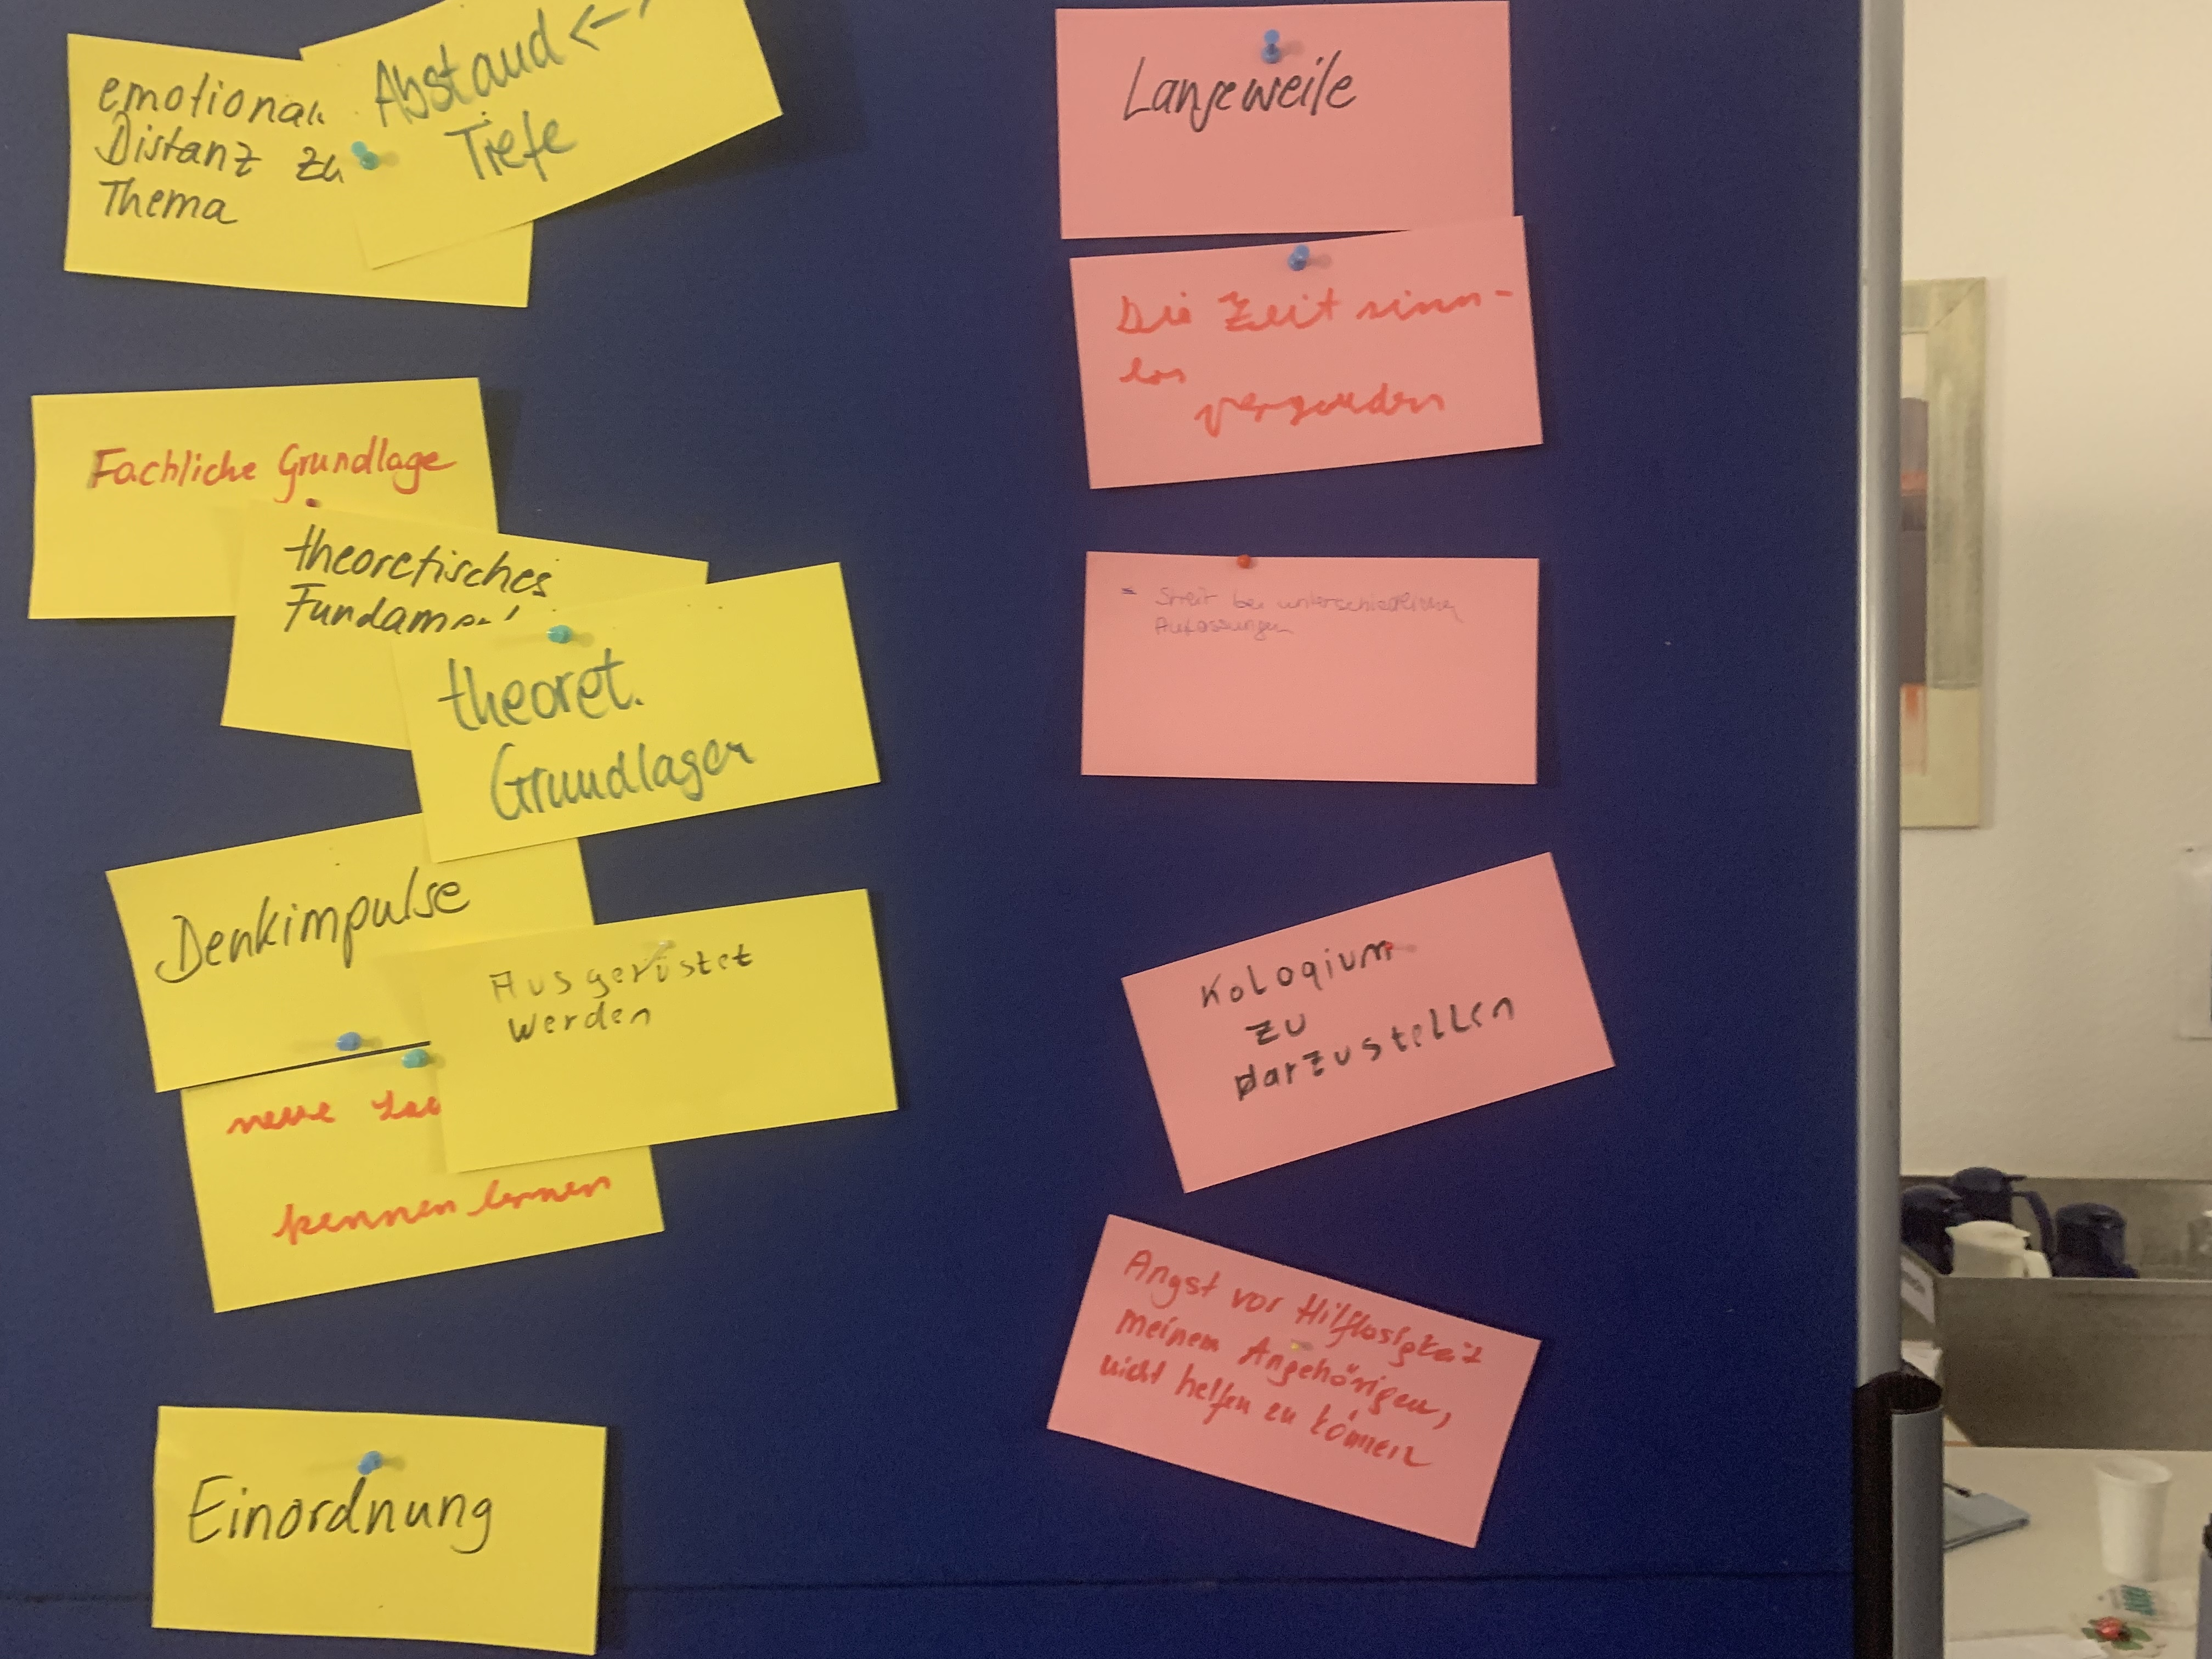 Abstand <-
Tiefe
Distanz
Thema
Fachliche Grundlage
theoretisches
theoret.
Grundlagen
Denkimpulse
Ausgerüstet
werden
neue
kennen lernen
Einordnung
Langeweile
Die Zeit sinn-
los
vergeuden
- Streit bei unterschiedlichen
Auffassungen
Kologium
zu
darzustellen
Angst vor Hilflosigkeit
meinem Angehörigen,
nicht helfen zu können